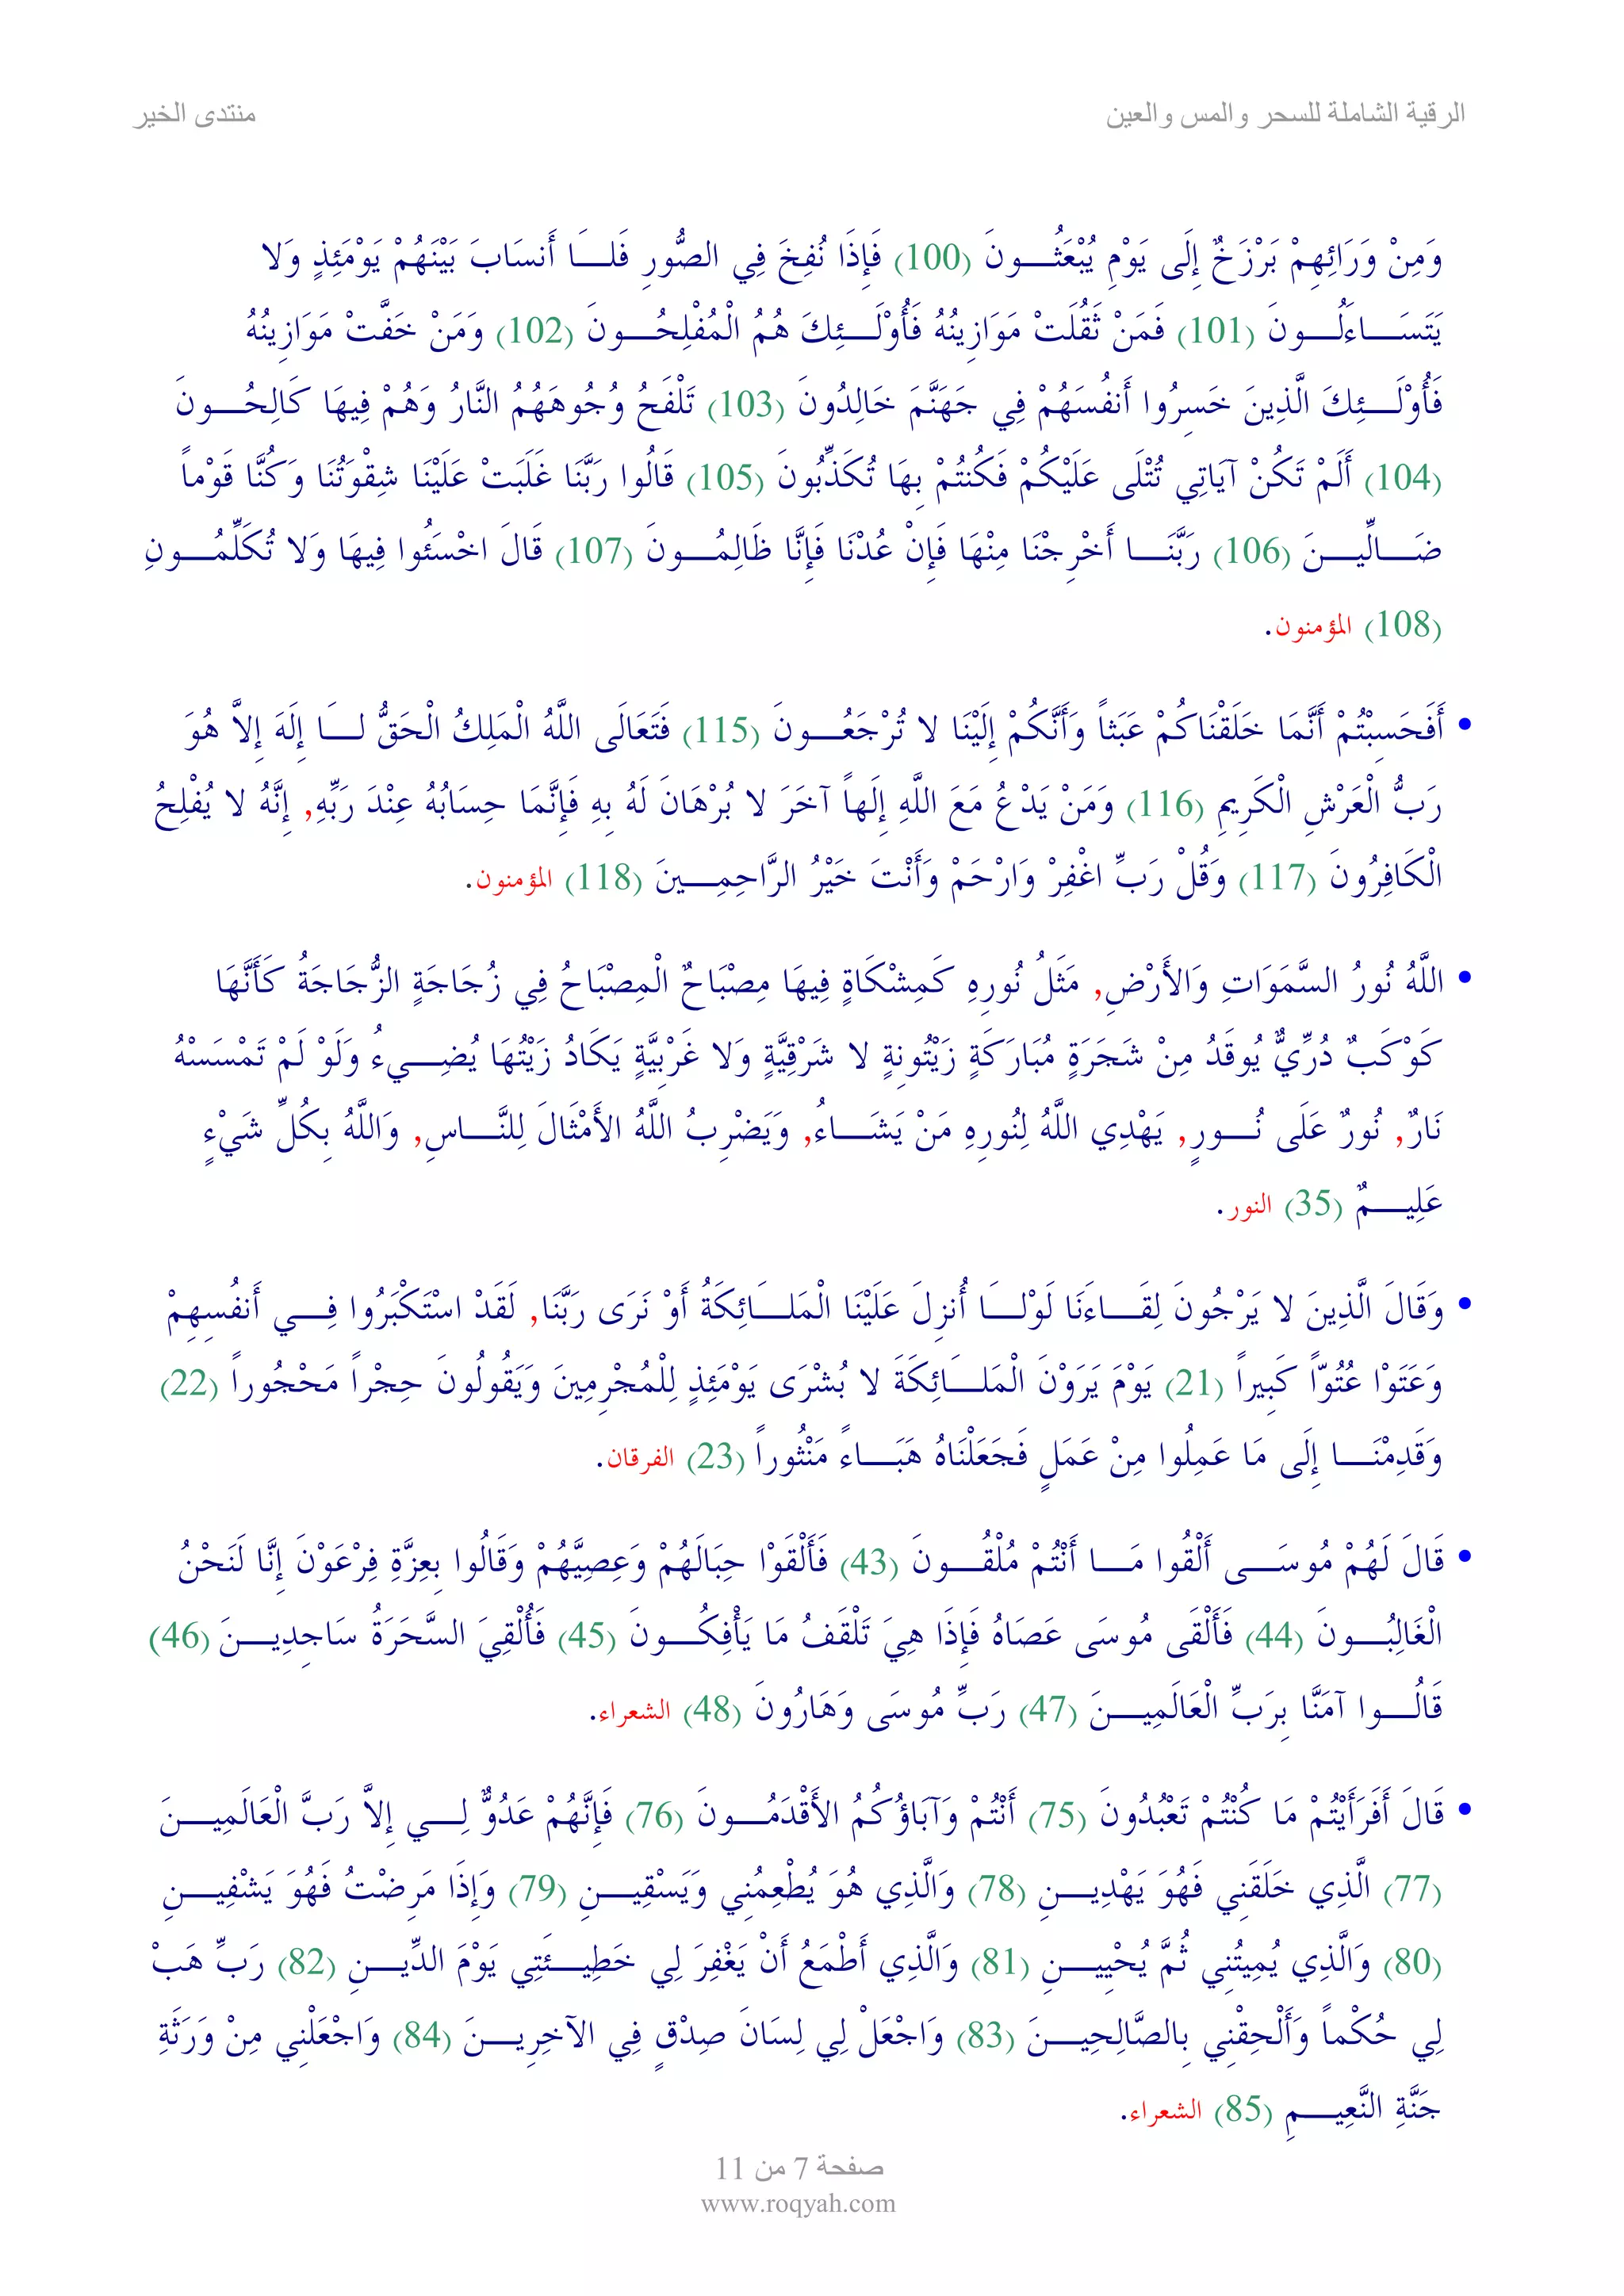 الرقية الشاملة للسحر والمس والعين
منتدى الخير
وَمِنْ وَرَائِهِمْ بَرْزَخٌ إِلَى يَوْمِ يُبْعَثُـــونَ (100) فَإِذَا نُفِخَ فِي الصُّورِ فَلـــَا أَنسَابَ بَيْنَهُمْ يَوْمَئِذٍ وَلا
يَتَسَـــاءَلُـــونَ (101) فَمَنْ ثَقُلَتْ مَوَازِينُهُ فَأُوْلَـــئِكَ هُمُ الْمُفْلِحُـــونَ (102) وَمَنْ خَفَّتْ مَوَازِينُهُ
فَأُوْلَـــئِكَ الَّذِينَ خَسِرُوا أَنفُسَهُمْ فِي جَهَنَّمَ خَالِدُونَ (103) تَلْفَحُ وُجُوهَهُمُ النَّارُ وَهُمْ فِيهَا كَالِحُـــونَ
(104) أَلَمْ تَكُنْ آيَاتِي تُتْلَى عَلَيْكُمْ فَكُنتُمْ بِهَا تُكَذِّبُونَ (105) قَالُوا رَبَّنَا غَلَبَتْ عَلَيْنَا شِقْوَتُنَا وَكُنَّا قَوْماً
ضَـــالِّيـــنَ (106) رَبَّنَـــا أَخْرِجْنَا مِنْهَا فَإِنْ عُدْنَا فَإِنَّا ظَالِمُـــونَ (107) قَالَ اخْسَئُوا فِيهَا وَلا تُكَلِّمُـــونِ
(108) المؤمنون.
• أَفَحَسِبْتُمْ أَنَّمَا خَلَقْنَاكُمْ عَبَثاً وَأَنَّكُمْ إِلَيْنَا لا تُرْجَعُـــونَ (115) فَتَعَالَى اللَّهُ الْمَلِكُ الْحَقُّ لـــَا إِلَهَ إِلاَّ هُوَ
رَبُّ الْعَرْشِ الْكَرِيمِ (116) وَمَنْ يَدْعُ مَعَ اللَّهِ إِلَهاً آخَرَ لا بُرْهَانَ لَهُ بِهِ فَإِنَّمَا حِسَابُهُ عِنْدَ رَبِّهِ, إِنَّهُ لا يُفْلِحُ
الْكَافِرُونَ (117) وَقُلْ رَبِّ اغْفِرْ وَارْحَمْ وَأَنْتَ خَيْرُ الرَّاحِمِـــينَ (118) المؤمنون.
• اللَّهُ نُورُ السَّمَوَاتِ وَالأَرْضِ, مَثَلُ نُورِهِ كَمِشْكَاةٍ فِيهَا مِصْبَاحٌ الْمِصْبَاحُ فِي زُجَاجَةٍ الزُّجَاجَةُ كَأَنَّهَا
كَوْكَبٌ دُرِّيٌّ يُوقَدُ مِنْ شَجَرَةٍ مُبَارَكَةٍ زَيْتُونِةٍ لا شَرْقِيَّةٍ وَلا غَرْبِيَّةٍ يَكَادُ زَيْتُهَا يُضِـــيءُ وَلَوْ لَمْ تَمْسَسْهُ
نَارٌ, نُورٌ عَلَى نُـــورٍ, يَهْدِي اللَّهُ لِنُورِهِ مَنْ يَشَـــاءُ, وَيَضْرِبُ اللَّهُ الأَمْثَالَ لِلنَّـــاسِ, وَاللَّهُ بِكُلِّ شَيْءٍ
عَلِيـــمٌ (35) النور.
• وَقَالَ الَّذِينَ لا يَرْجُونَ لِقَـــاءَنَا لَوْلـــَا أُنزِلَ عَلَيْنَا الْمَلـــَائِكَةُ أَوْ نَرَى رَبَّنَا, لَقَدْ اسْتَكْبَرُوا فِـــي أَنفُسِهِمْ
وَعَتَوْا عُتُوّاً كَبِيراً (21) يَوْمَ يَرَوْنَ الْمَلـــَائِكَةَ لا بُشْرَى يَوْمَئِذٍ لِلْمُجْرِمِينَ وَيَقُولُونَ حِجْراً مَحْجُوراً (22)
وَقَدِمْنَـــا إِلَى مَا عَمِلُوا مِنْ عَمَلٍ فَجَعَلْنَاهُ هَبَـــاءً مَنْثُوراً (23) الفرقان.
• قَالَ لَهُمْ مُوسَـــى أَلْقُوا مَـــا أَنْتُمْ مُلْقُـــونَ (43) فَأَلْقَوْا حِبَالَهُمْ وَعِصِيَّهُمْ وَقَالُوا بِعِزَّةِ فِرْعَوْنَ إِنَّا لَنَحْنُ
الْغَالِبُـــونَ (44) فَأَلْقَى مُوسَى عَصَاهُ فَإِذَا هِيَ تَلْقَفُ مَا يَأْفِكُـــونَ (45) فَأُلْقِيَ السَّحَرَةُ سَاجِدِيـــنَ (46)
قَالُـــوا آمَنَّا بِرَبِّ الْعَالَمِيـــنَ (47) رَبِّ مُوسَى وَهَارُونَ (48) الشعراء.
• قَالَ أَفَرَأَيْتُمْ مَا كُنْتُمْ تَعْبُدُونَ (75) أَنْتُمْ وَآبَاؤُكُمُ الأَقْدَمُـــونَ (76) فَإِنَّهُمْ عَدُوٌّ لِـــي إِلاَّ رَبَّ الْعَالَمِيـــنَ
(77) الَّذِي خَلَقَنِي فَهُوَ يَهْدِيـــنِ (78) وَالَّذِي هُوَ يُطْعِمُنِي وَيَسْقِيـــنِ (79) وَإِذَا مَرِضْتُ فَهُوَ يَشْفِيـــنِ
(80) وَالَّذِي يُمِيتُنِي ثُمَّ يُحْيِيـــنِ (81) وَالَّذِي أَطْمَعُ أَنْ يَغْفِرَ لِي خَطِيـــئَتِي يَوْمَ الدِّيـــنِ (82) رَبِّ هَبْ
لِي حُكْماً وَأَلْحِقْنِي بِالصَّالِحِيـــنَ (83) وَاجْعَلْ لِي لِسَانَ صِدْقٍ فِي الآخِرِيـــنَ (84) وَاجْعَلْنِي مِنْ وَرَثَةِ
جَنَّةِ النَّعِيـــمِ (85) الشعراء.
صفحة 7 من 11
www.roqyah.com